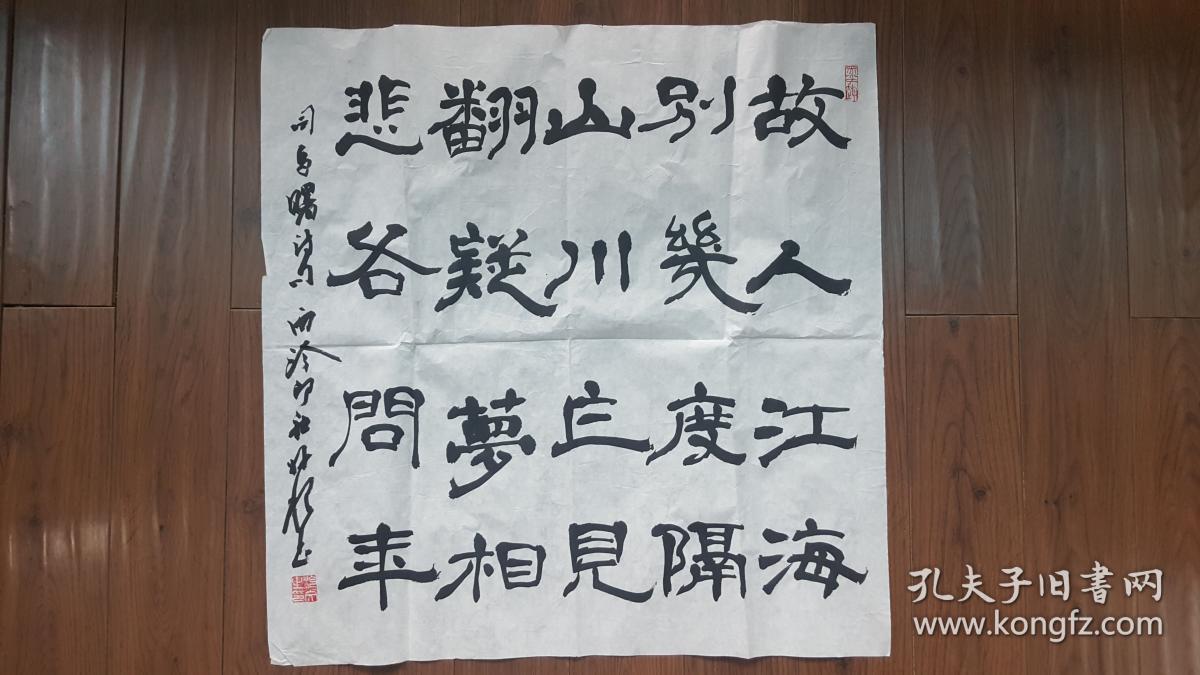 故人江海
別幾度隔
山川乍見
翻疑夢相
悲各問年
司马曙诗句 西泠印社
孔夫子旧書网
www.kongfz.com